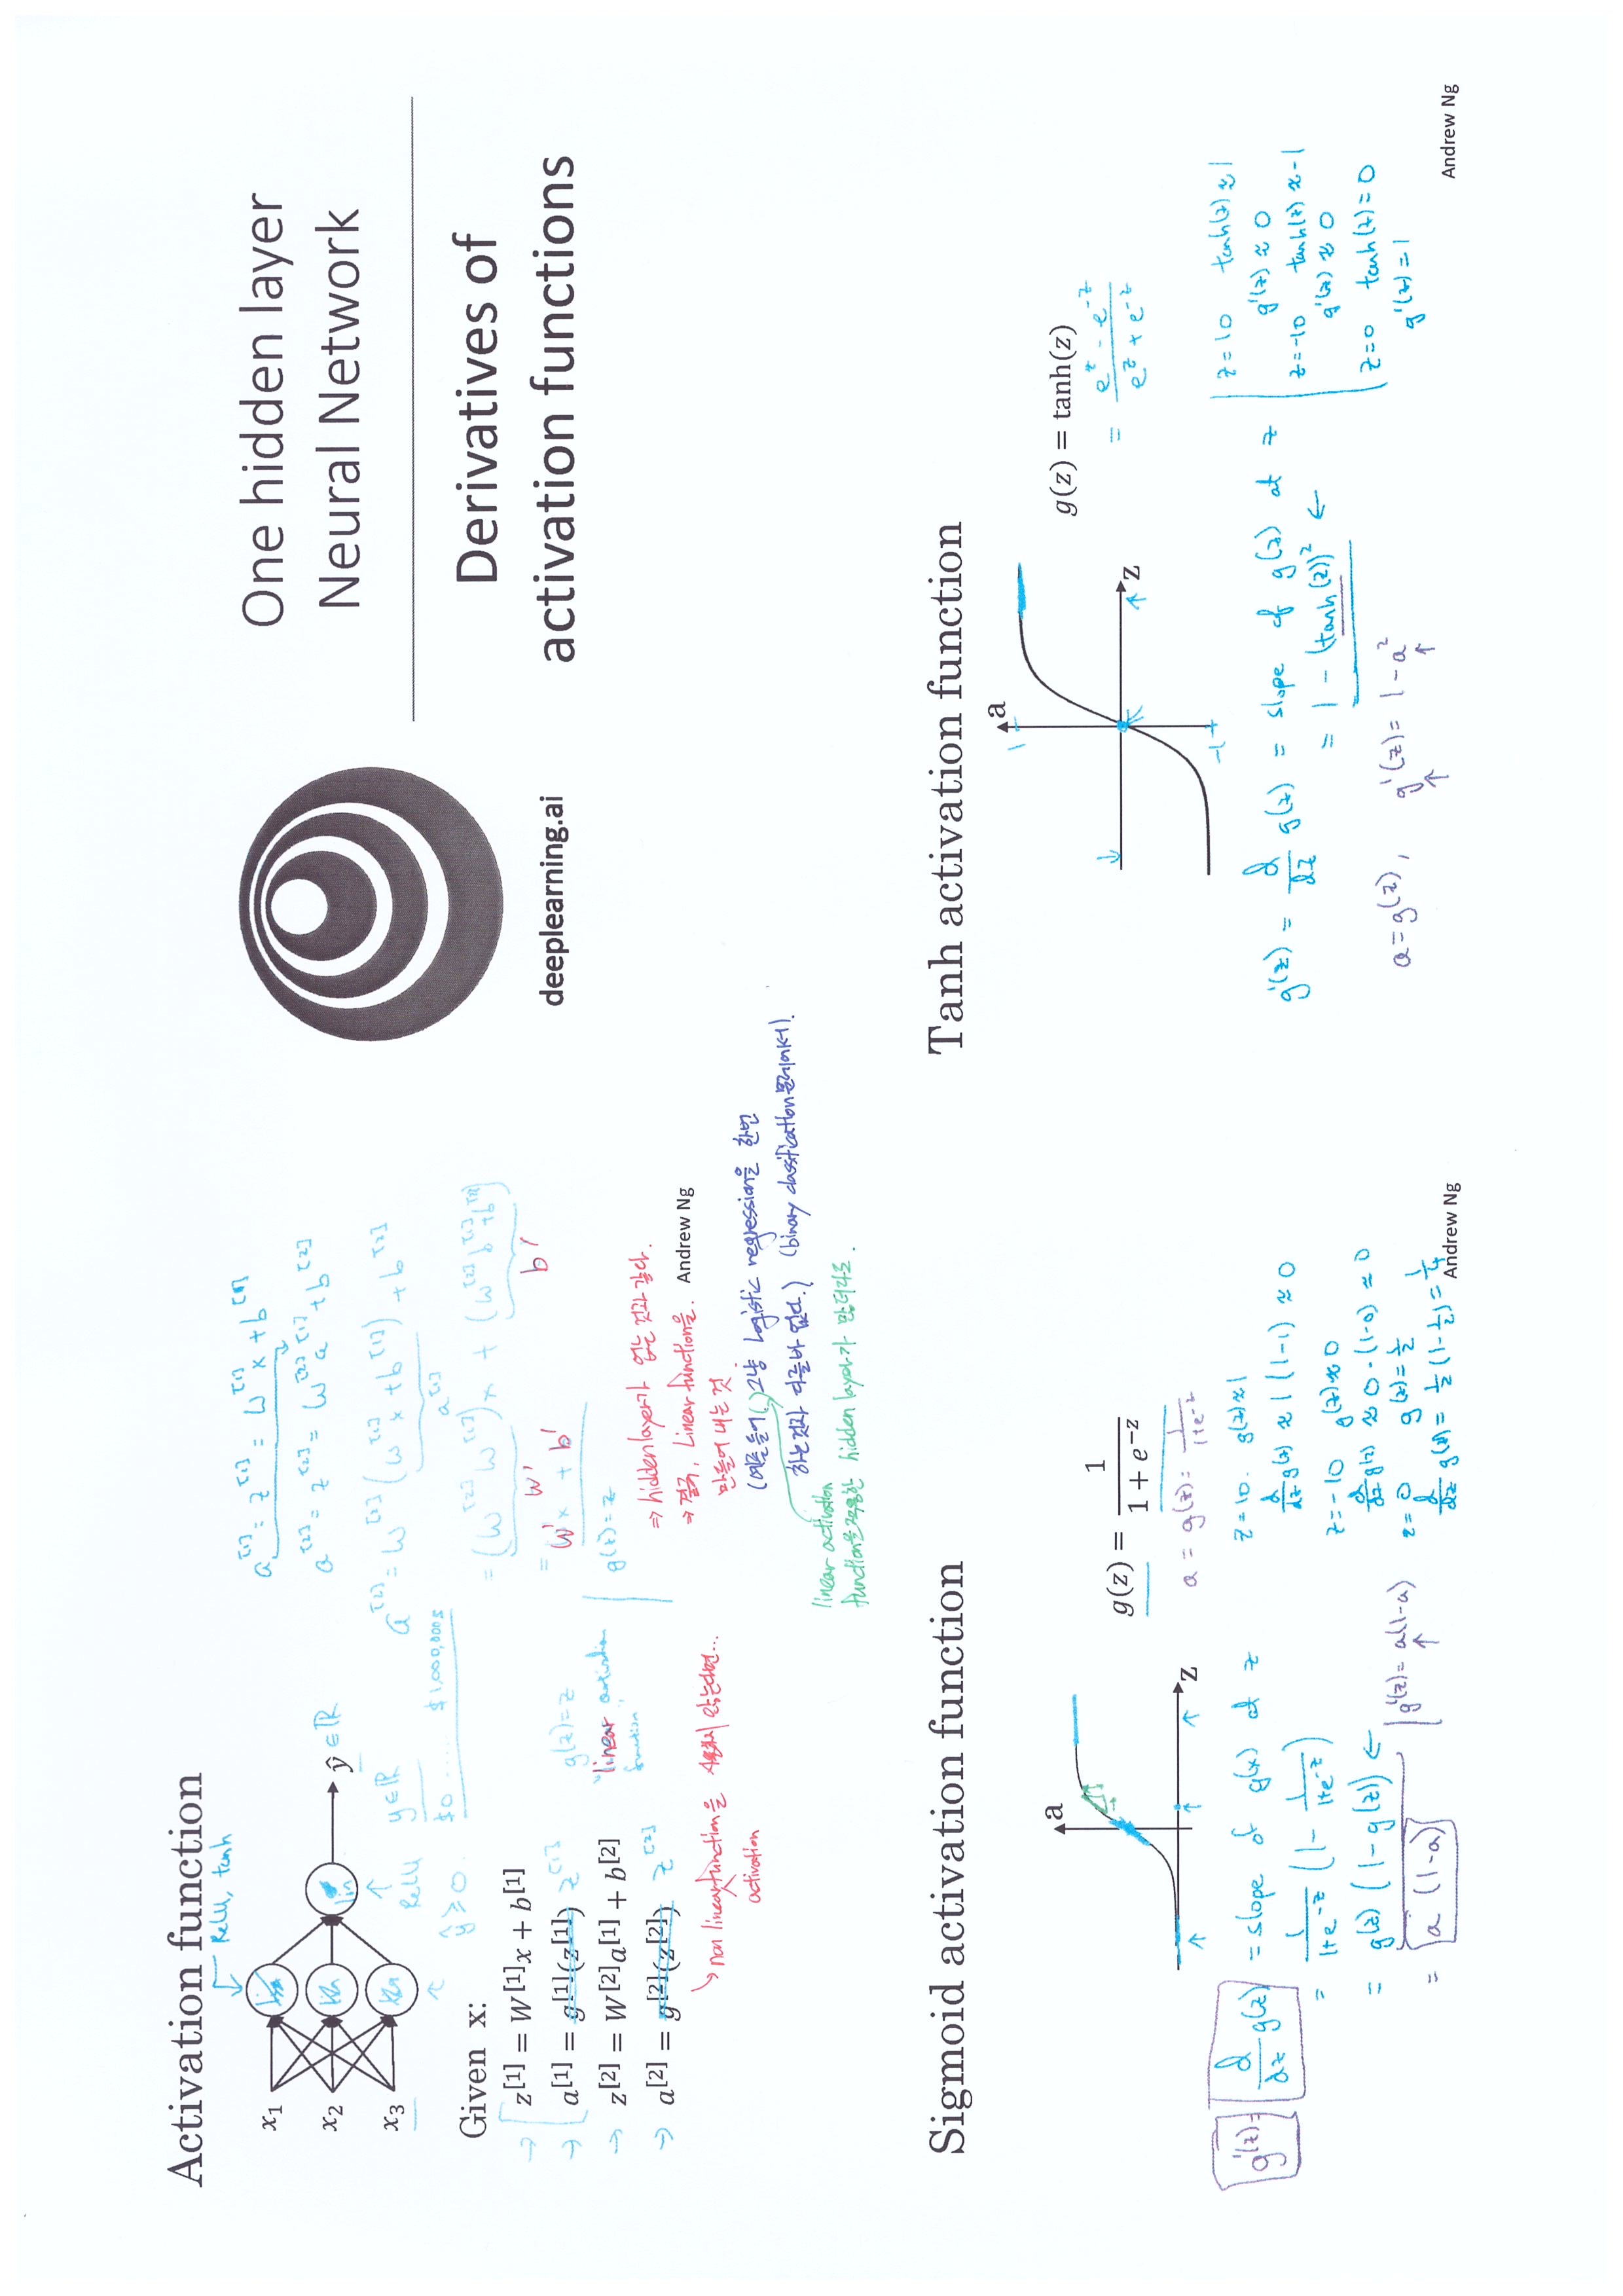 Activation function
ReLU, tanh
x₁
x₂
x₃
lin
ŷ ∈ ℝ
ReLU
ŷ ≥ 0.
y ∈ ℝ
$0 ..... $1,000,000s
Given x:
z[1] = W[1]x + b[1]
a[1] = g[1](z[1]) z[1]
z[2] = W[2]a[1] + b[2]
a[2] = g[2](z[2]) z[2]
g(z) = z
"linear activation
function"
non linear function을 사용하지 않는다면...
activation
a[1] = z[1] = W[1]x + b[1]
a[2] = z[2] = W[2]a[1] + b[2]
a[2] = W[2](W[1]x + b[1]) + b[2]
a[1]
= (W[2]W[1])x + (W[2]b[1] + b[2])
W' b'
= W'x + b'
g(z) = z
⇒ hidden layer가 없는 것과 같다.
⇒ 결국, Linear function을.
만들어 내는 것
(예를들어( )그냥 Logistic regression을 한번
하는것과 다를바 없다.) (binary classification문제에서).
linear activation
function을 적용한 hidden layer가 많더라도.
Andrew Ng
deeplearning.ai
One hidden layer
Neural Network
Derivatives of
activation functions
Sigmoid activation function
a
z
g(z) = 1 / (1 + e^−z)
a = g(z) = 1 / (1+e^-z)
g'(z) = d/dz g(z) = slope of g(x) at z
= 1/(1+e^-z) (1 - 1/(1+e^-z))
= g(z) (1-g(z)) ←
= a (1-a)
g'(z) = a(1-a)
z=10. g(z)≈1
d/dz g(z) ≈ 1(1-1) ≈ 0
z=-10 g(z)≈0
d/dz g(z) ≈ 0·(1-0) ≈ 0
z=0 g(z)=1/2
d/dz g(z) = 1/2(1-1/2) = 1/4
Andrew Ng
Tanh activation function
a
1
z
-1
g(z) = tanh(z)
= (e^z - e^-z) / (e^z + e^-z)
g'(z) = d/dz g(z) = slope of g(z) at z
= 1 - (tanh(z))² ←
a = g(z), g'(z) = 1-a²
z=10 tanh(z)≈1
g'(z)≈0
z=-10 tanh(z)≈-1
g'(z)≈0
z=0 tanh(z)=0
g'(z)=1
Andrew Ng